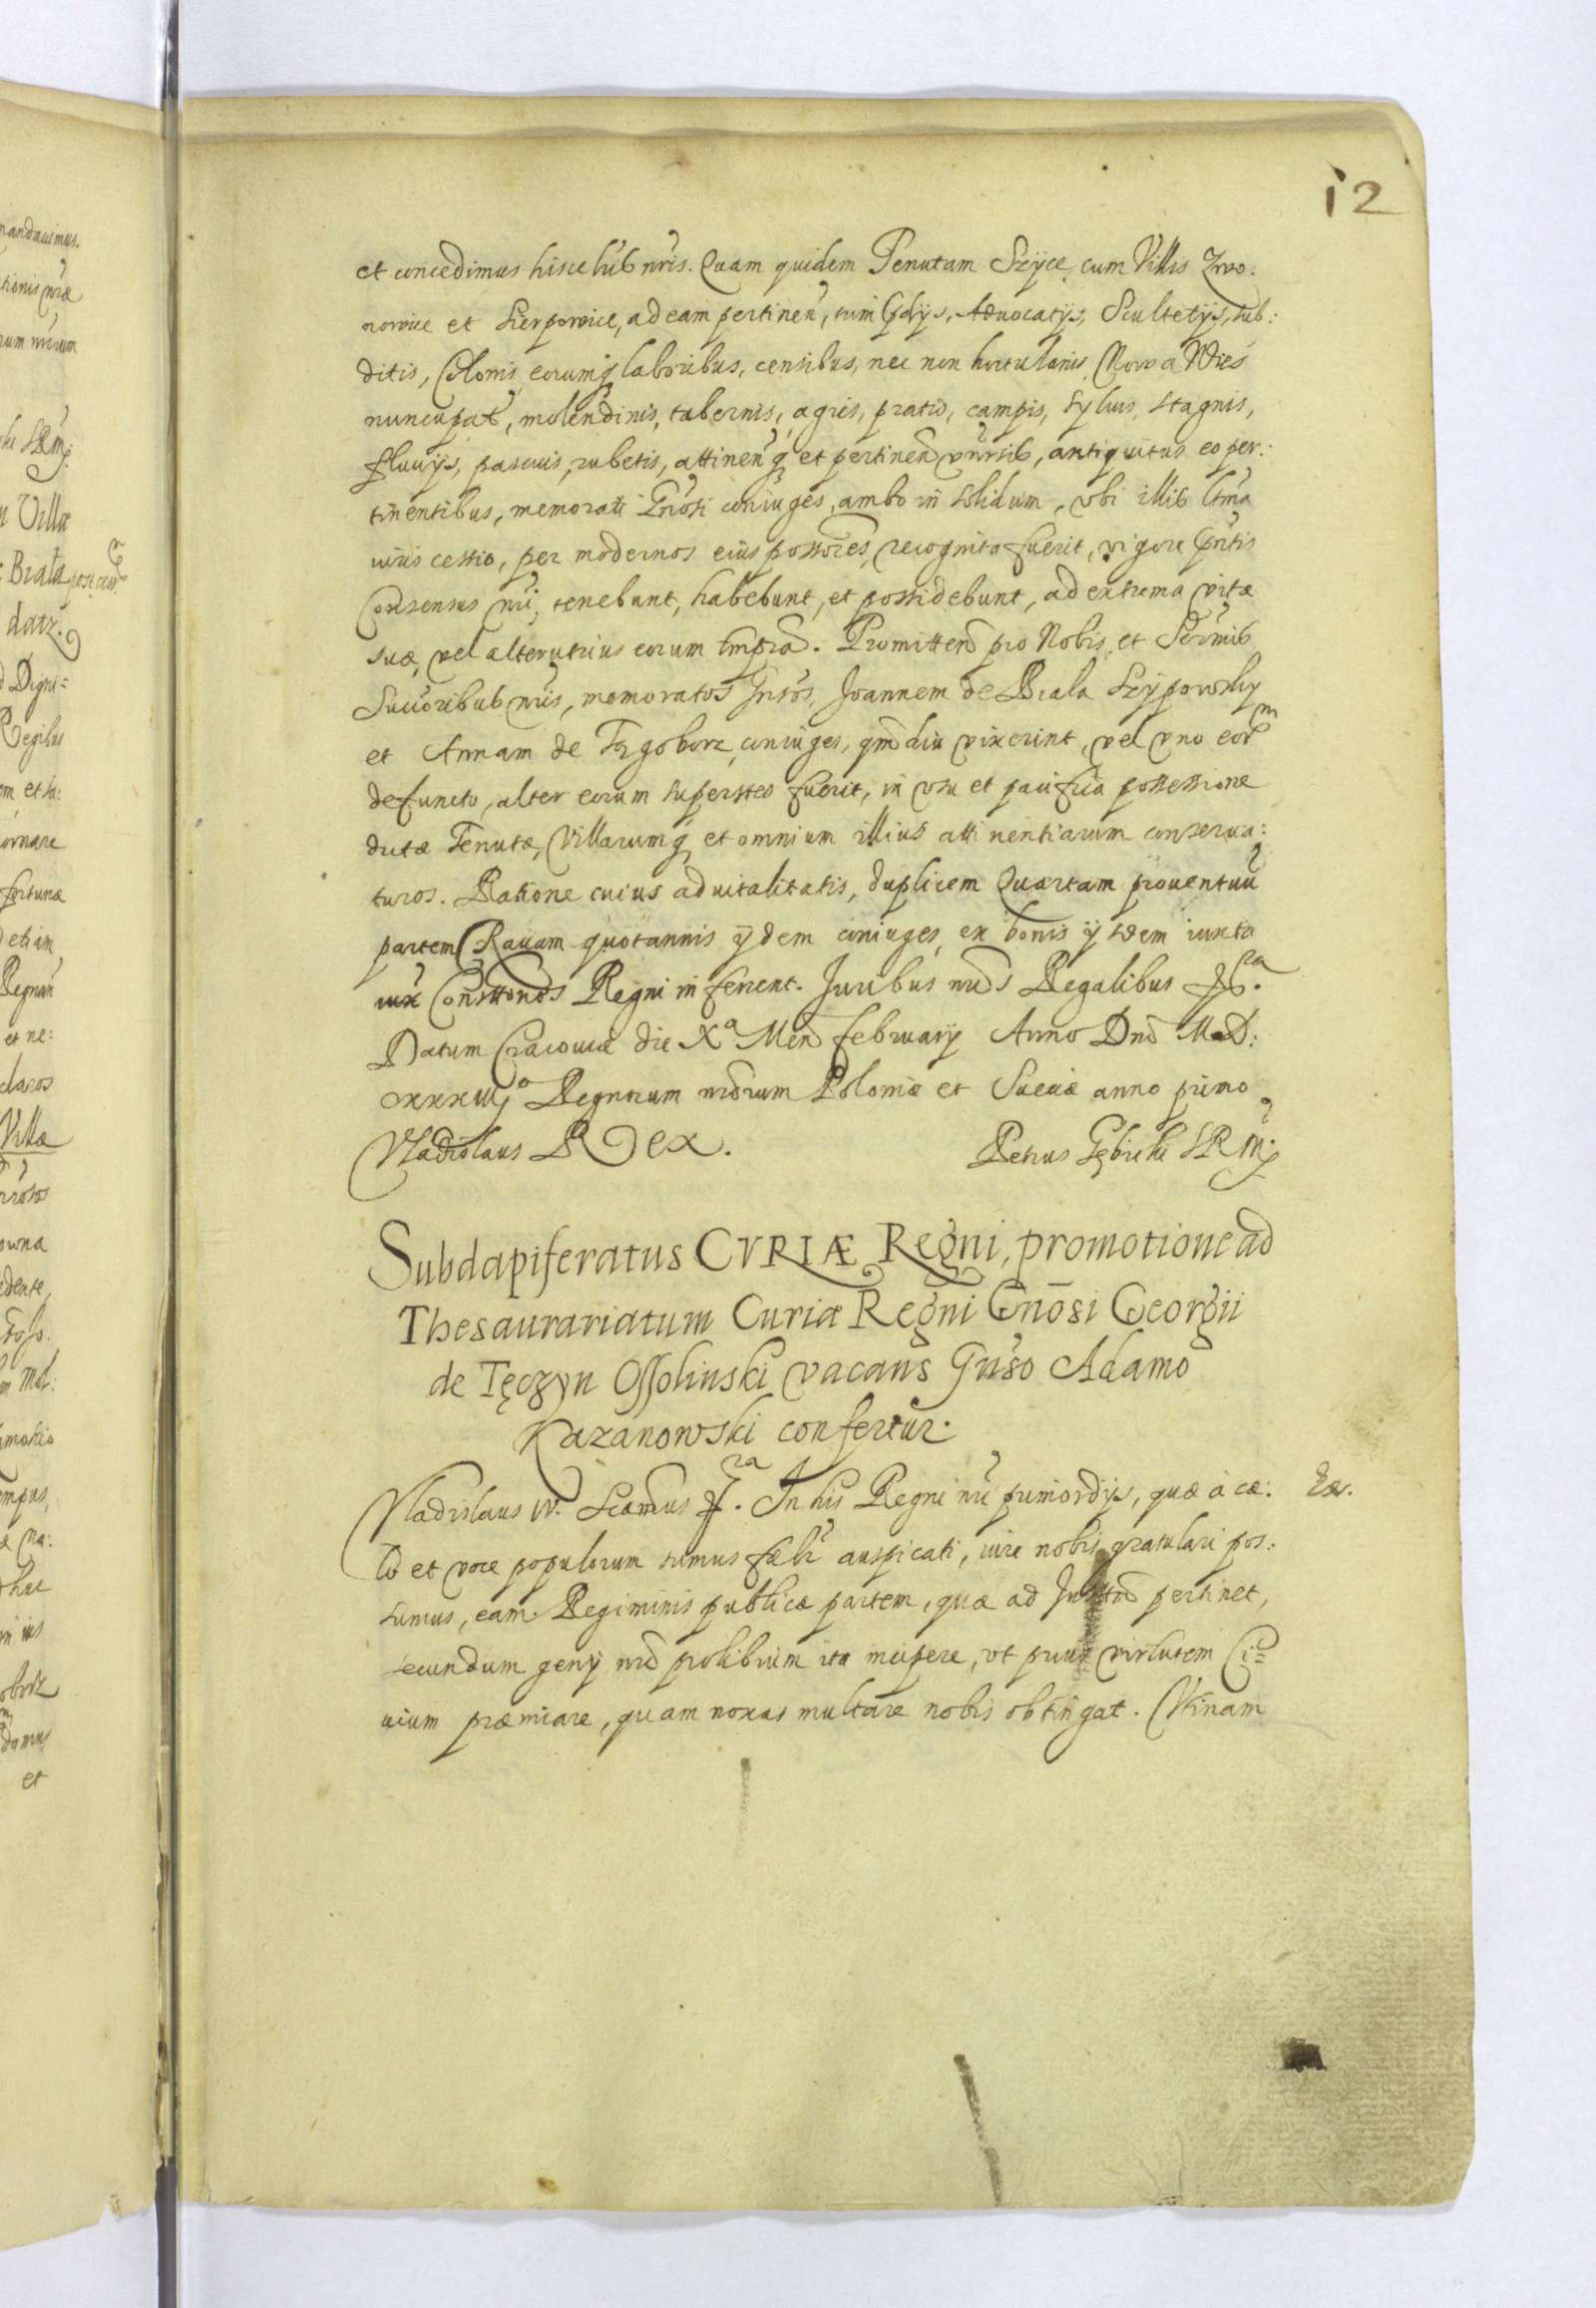 12
et concedimus hisce lrīb nrīs. Quam quidem Tenutam Szÿce, cum Villis Zwo:
nowice et Sierpowice, ad eam pertinen̄, tum Aduocatijs, Scultetijs, sub:
ditis, Colonis, eorumq laboribus, censibus, nec non hortulanis, Nowa Wieś
nuncupat̄, molendinis, tabernis, agris, pratis, campis, syluis, stagnis,
fluuijs, pascuis, rubetis, attinen̄q et pertinen̄ vnīrsib, antiquitus eo per:
tinentibus, memorati Gn̄osi coniuges, ambo in solidum, vbi illib ltīma
iuris cessio, per modernos eius possores, recognita fuerit, vigore pn̄tis
Consensus nrī, tenebunt, habebunt, et possidebunt, ad extrema vitæ
suæ, vel alterutrius eorum tmpra. Promitten̄ pro Nobis, et Serm̄ib
Succōribub nrīs, memoratos Gn̄sos, Joannem de Biała Szÿpowsky
et Annam de Forgobork coniuges, qm̄diu vixerint, vel vno eor̄m
defuncto, alter eorum superstes fuerit, in vsu et pacifica possessione
dictæ Tenutæ, Villarumq et omnium illius attinentiarum conserua:
turos. Ratione cuius aduitalitatis, duplicem Quartam prouentuū
partem Rauam quotannis ijdem coniuges, ex bonis ijsdem iuxta
Consttones Regni inferent. Juribus nrīs Regalibus &ra.
Datum Cracouiæ die Xa Men̄ february Anno Dnī M.D:
cxxxiijo Regnrum nrorum Poloniæ et Sueciæ anno primo
Vladislaus Rex. Petrus Gębicki SRM
Subdapiferatus CVRIÆ Regni, promotione ad
Thesaurariatum Curiæ Regni Gn̄osi Georgii
de Tęczyn Ossolinski vacans Gn̄so Adamo
Kazanowski confertur.
Vladislaus IV. Scamus &ra. In his Regni nrī primordijs, quæ a cæ:
lo et voce populorum sumus fælr̄ auspicati, iure nobis gratulari pos:
sumus, eam Regiminis publicæ partem, quæ ad pertinet,
secundum genij nrī ita incipere, vt prius virtutem Ci=
uium præmiare, quam noxas multare nobis obtingat. Vtinam